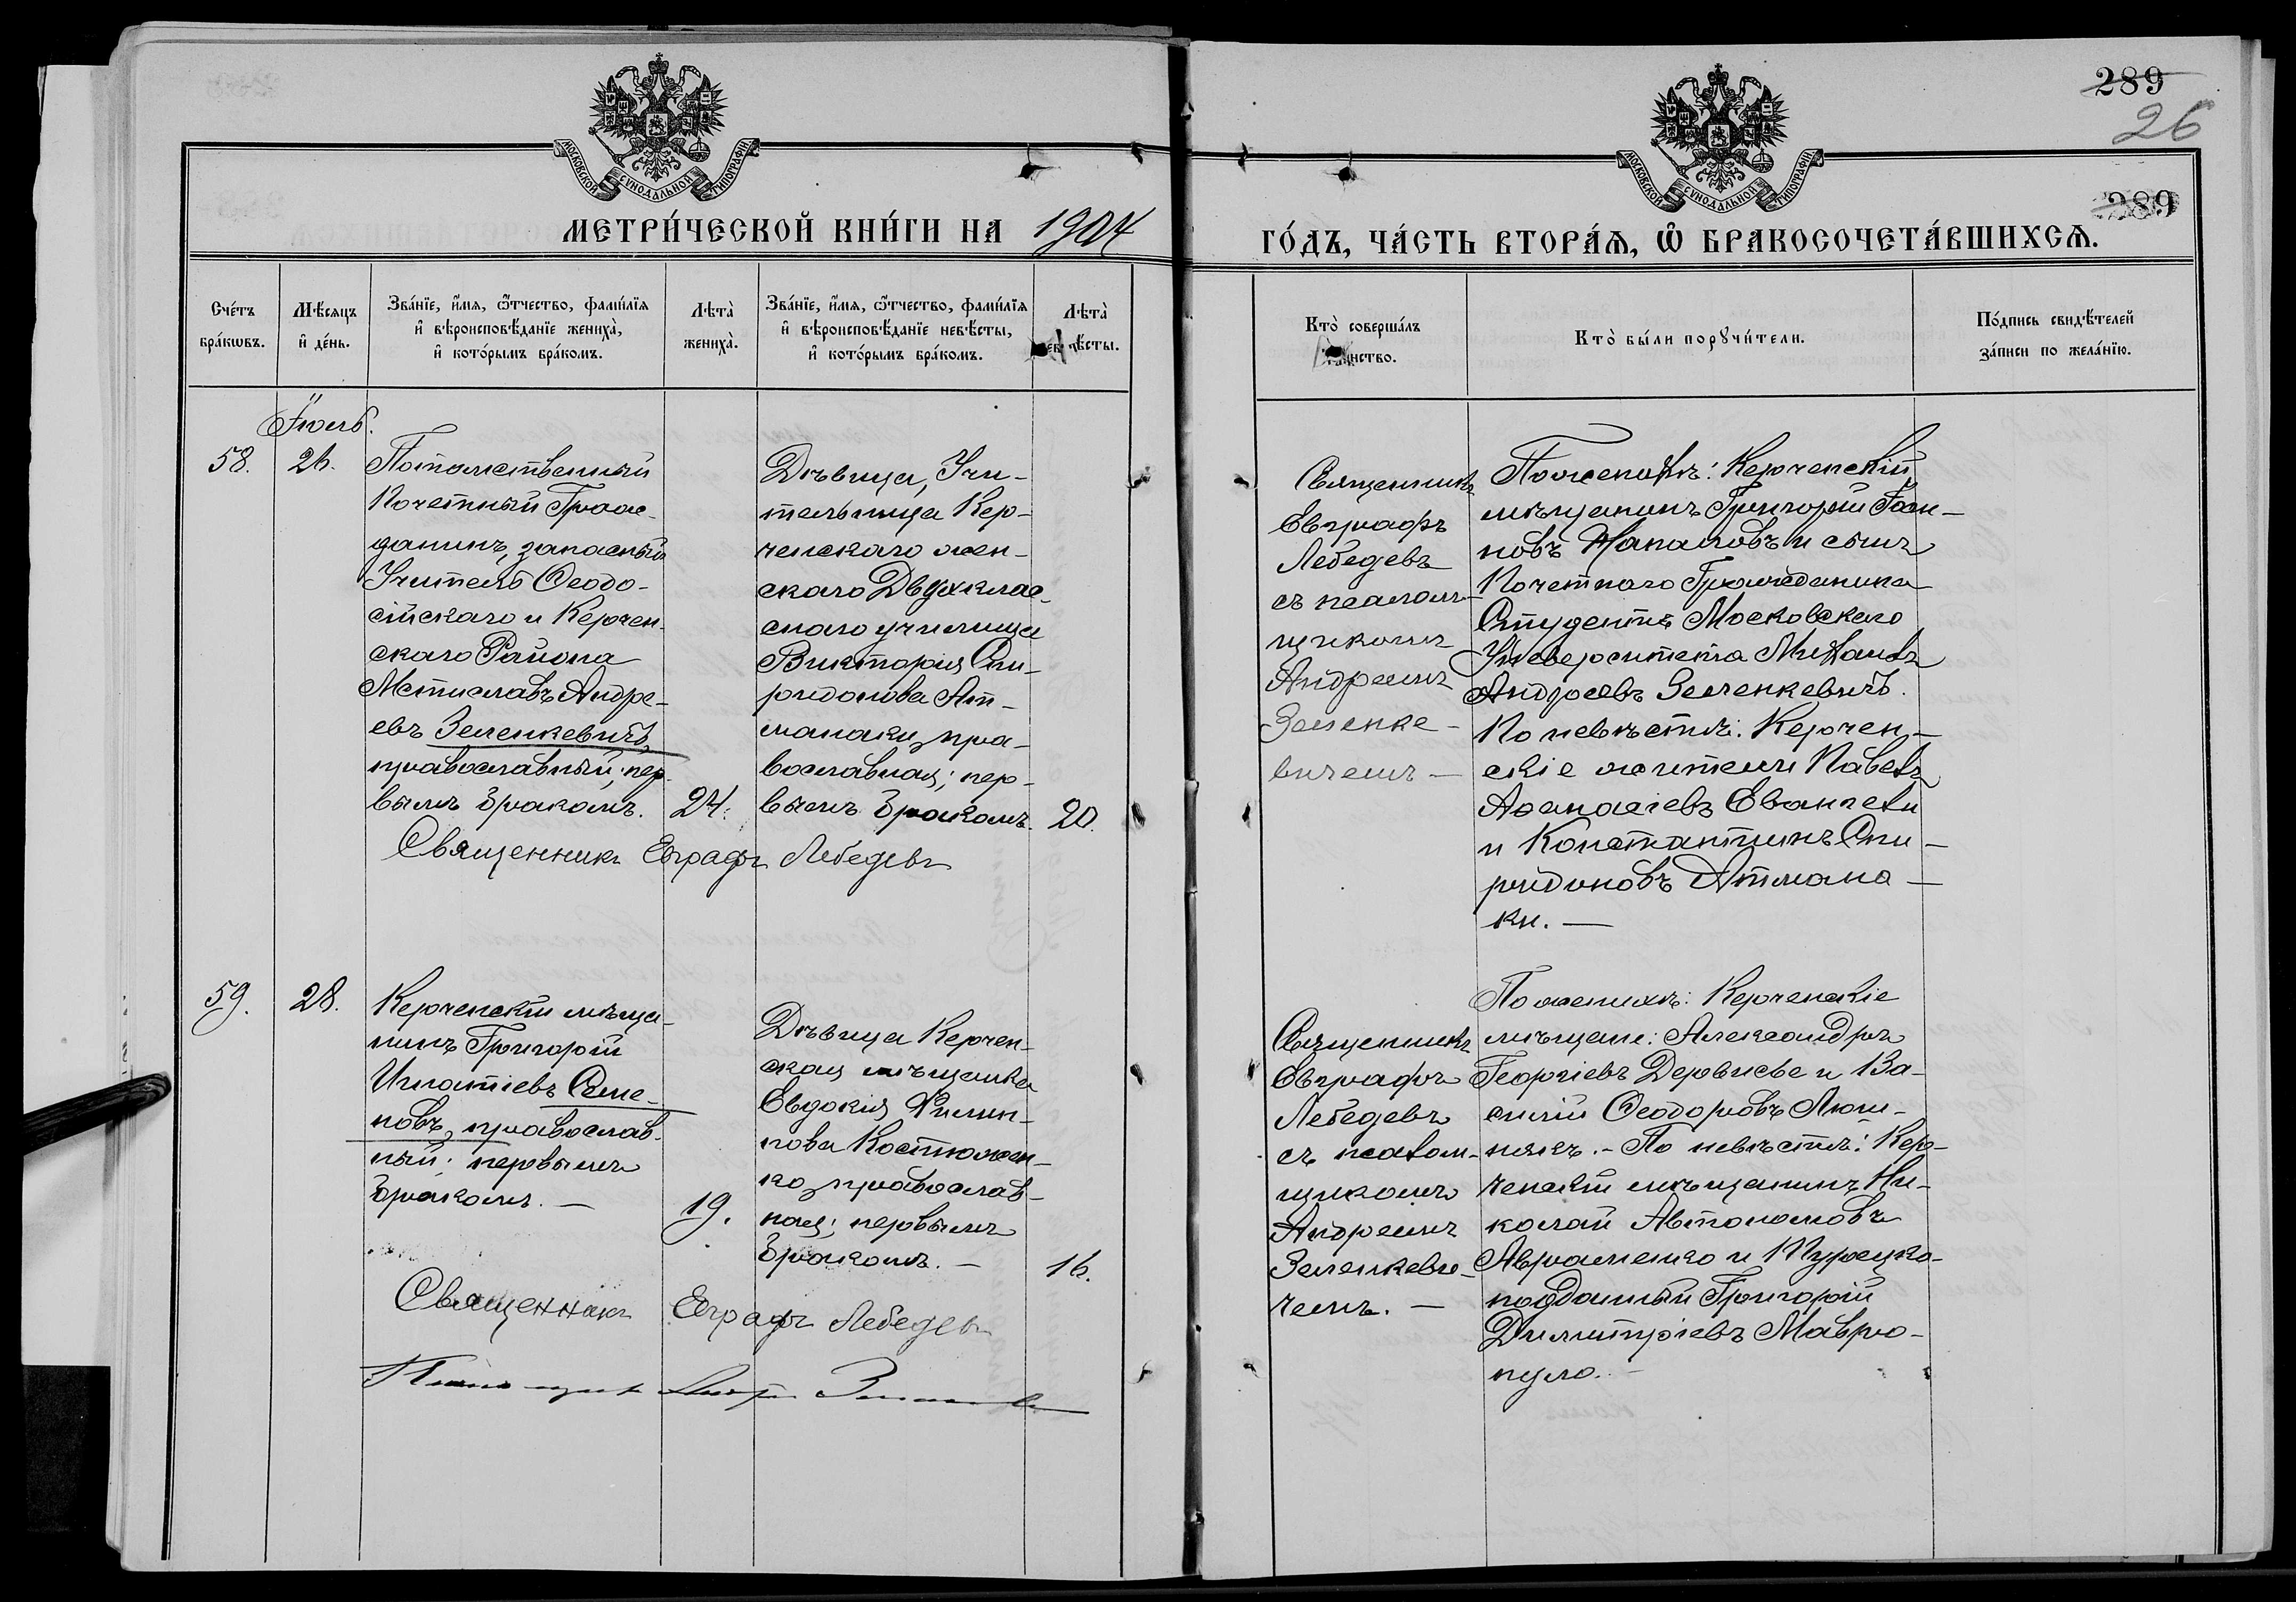 289
26
289
МОСКОВСКОЙ СѴНОДАЛЬНОЙ ТИПОГРАФІИ
МОСКОВСКОЙ СѴНОДАЛЬНОЙ ТИПОГРАФІИ
МЕТРИ́ЧЕСКОЙ КНИ́ГИ НА 1904
ГО́ДЪ, ЧА́СТЬ ВТОРА́Ѧ, Ѡ҆ БРАКОСОЧЕТА́ВШИХСѦ.
Сче́тъ
бра́кѡвъ.
Мѣ́сяцъ
и҆ де́нь.
Зва́нїе, и҆́мя, ѻ҆́тчество, фами́лїя
и҆ вѣроисповѣ́данїе жениха̀,
и҆ кото́рымъ бра́комъ.
Лѣта̀
жениха̀.
Зва́нїе, и҆́мя, ѻ҆́тчество, фами́лїя
и҆ вѣроисповѣ́данїе невѣ́сты,
и҆ кото́рымъ бра́комъ.
Лѣта̀
невѣ́сты.
Кто̀ соверша́лъ
таинство.
Кто̀ бы́ли порꙋчи́тели.
По́дпись свидѣ́телей
за́писи по жела́нїю.
Іюль.
58.
26.
Потомственный
Почетный Граж-
данинъ, запасный
Учитель Ѳеодо-
сійскаго и Керчен-
скаго Района
Мстиславъ Андре-
евъ Зеленкевичъ,
православный; пер-
вымъ бракомъ.
24.
Дѣвица, Учи-
тельница Кер-
ченскаго жен-
скаго Двухклас-
снаго училища
Викторія Спи-
ридонова Ат-
манаки, пра-
вославная; пер-
вымъ бракомъ.
20.
Священникъ Евграфъ Лебедевъ
Священникъ
Евграфъ
Лебедевъ
съ псалом-
щикомъ
Андреемъ
Зеленке-
вичемъ —
По женихѣ: Керченскій
мѣщанинъ Григорій Іоан-
новъ и сынъ
Почетнаго Гражданина
Студентъ Московскаго
Университета Михаилъ
Андреевъ Зеленкевичъ.
По невѣстѣ: Керчен-
скіе жители Павелъ
Аѳанасіевъ Евангели
и Константинъ Спи-
ридоновъ Атмана-
ки. —
59.
28.
Керченскій мѣща-
нинъ Григорій
Игнатіевъ Семе-
новъ, православ-
ный; первымъ
бракомъ. —
19.
Дѣвица Керчен-
ская мѣщанка
Евдокія Филип-
пова Костюжен-
ко, православ-
ная; первымъ
бракомъ. —
16.
Священникъ Евграфъ Лебедевъ
Священникъ
Евграфъ
Лебедевъ
съ псалом-
щикомъ
Андреемъ
Зеленкеви-
чемъ. —
По женихѣ: Керченскіе
мѣщане: Александръ
Георгіевъ и Ва-
силій Ѳеодоровъ
По невѣстѣ: Кер-
ченскій мѣщанинъ Ни-
колай Автономовъ
Авраменко и Турецко-
подданный Григорій
Димитріевъ Мавро-
пуло. —